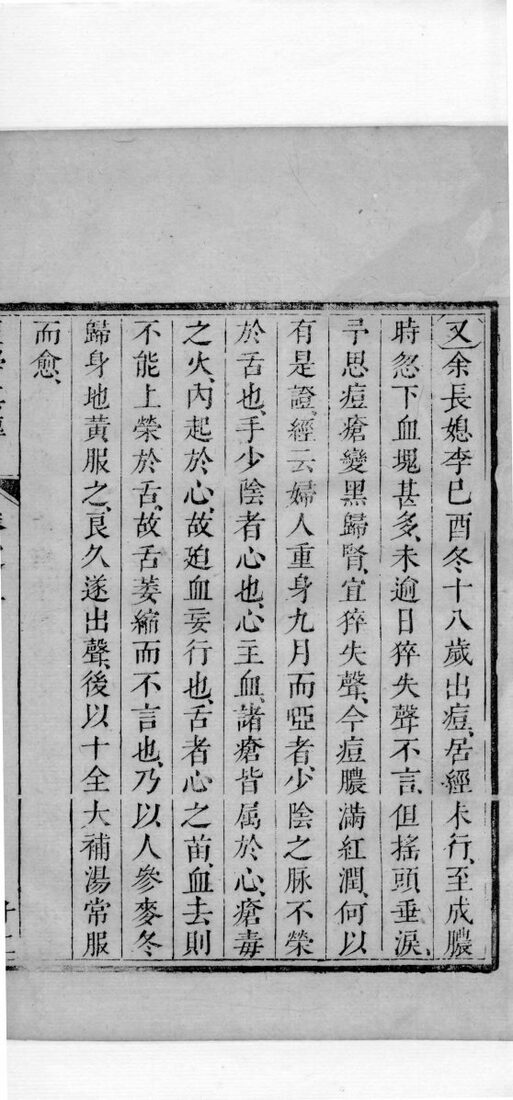 又余長媳李巳酉冬十八歲出痘、居經未行、至成膿
時忽下血塊甚多、未逾日猝失聲不言、但搖頭垂淚、
予思痘瘡變黑歸腎、宜猝失聲、今痘膿滿紅潤、何以
有是證、經云婦人重身九月而啞者、少陰之脉不榮
於舌也、手少陰者心也、心主血、諸瘡皆属於心、瘡毒
之火、內起於心、故廹血妄行也、舌者心之苗、血去則
不能上榮於舌、故舌萎縮而不言也、乃以人參麥冬
歸身地黃服之、良久遂出聲、後以十全大補湯常服
而愈、